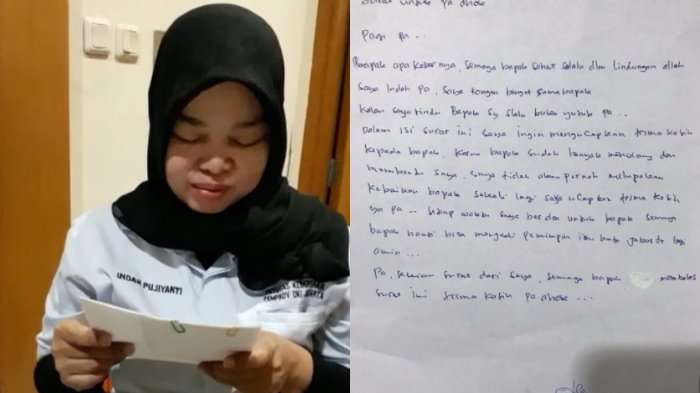 INDAH PUJIYANTI
PETUGAS KEBERSIHAN
PEMPROV DKI JAKARTA
Surat untuk Pa ahok
Pagi Pa...
Bapak apa kabarnya, semoga bapak sehat selalu dlm lindungan allah
Saya Indah Pa, Saya kangen banget sama bapak
Kalau saya rindu Bapak Sy slalu buka yutub Pa..
Dalam isi surat ini saya ingin mengucapkan trima kasih
kepada bapak, karna bapak sudah banyak menolong dan
membantu saya, saya tidak akan pernah melupakan
kebaikan bapak sekali lagi saya ucapkan trima kasih
ya Pa -- setiap waktu saya berdoa untuk bapak semoga
bapak nanti bisa menjadi Pemimpin ibu kota jakarta lagi
amin...
Pa, sekian surat dari saya, semoga bapak membalas
surat ini trima kasih Pa ahok...